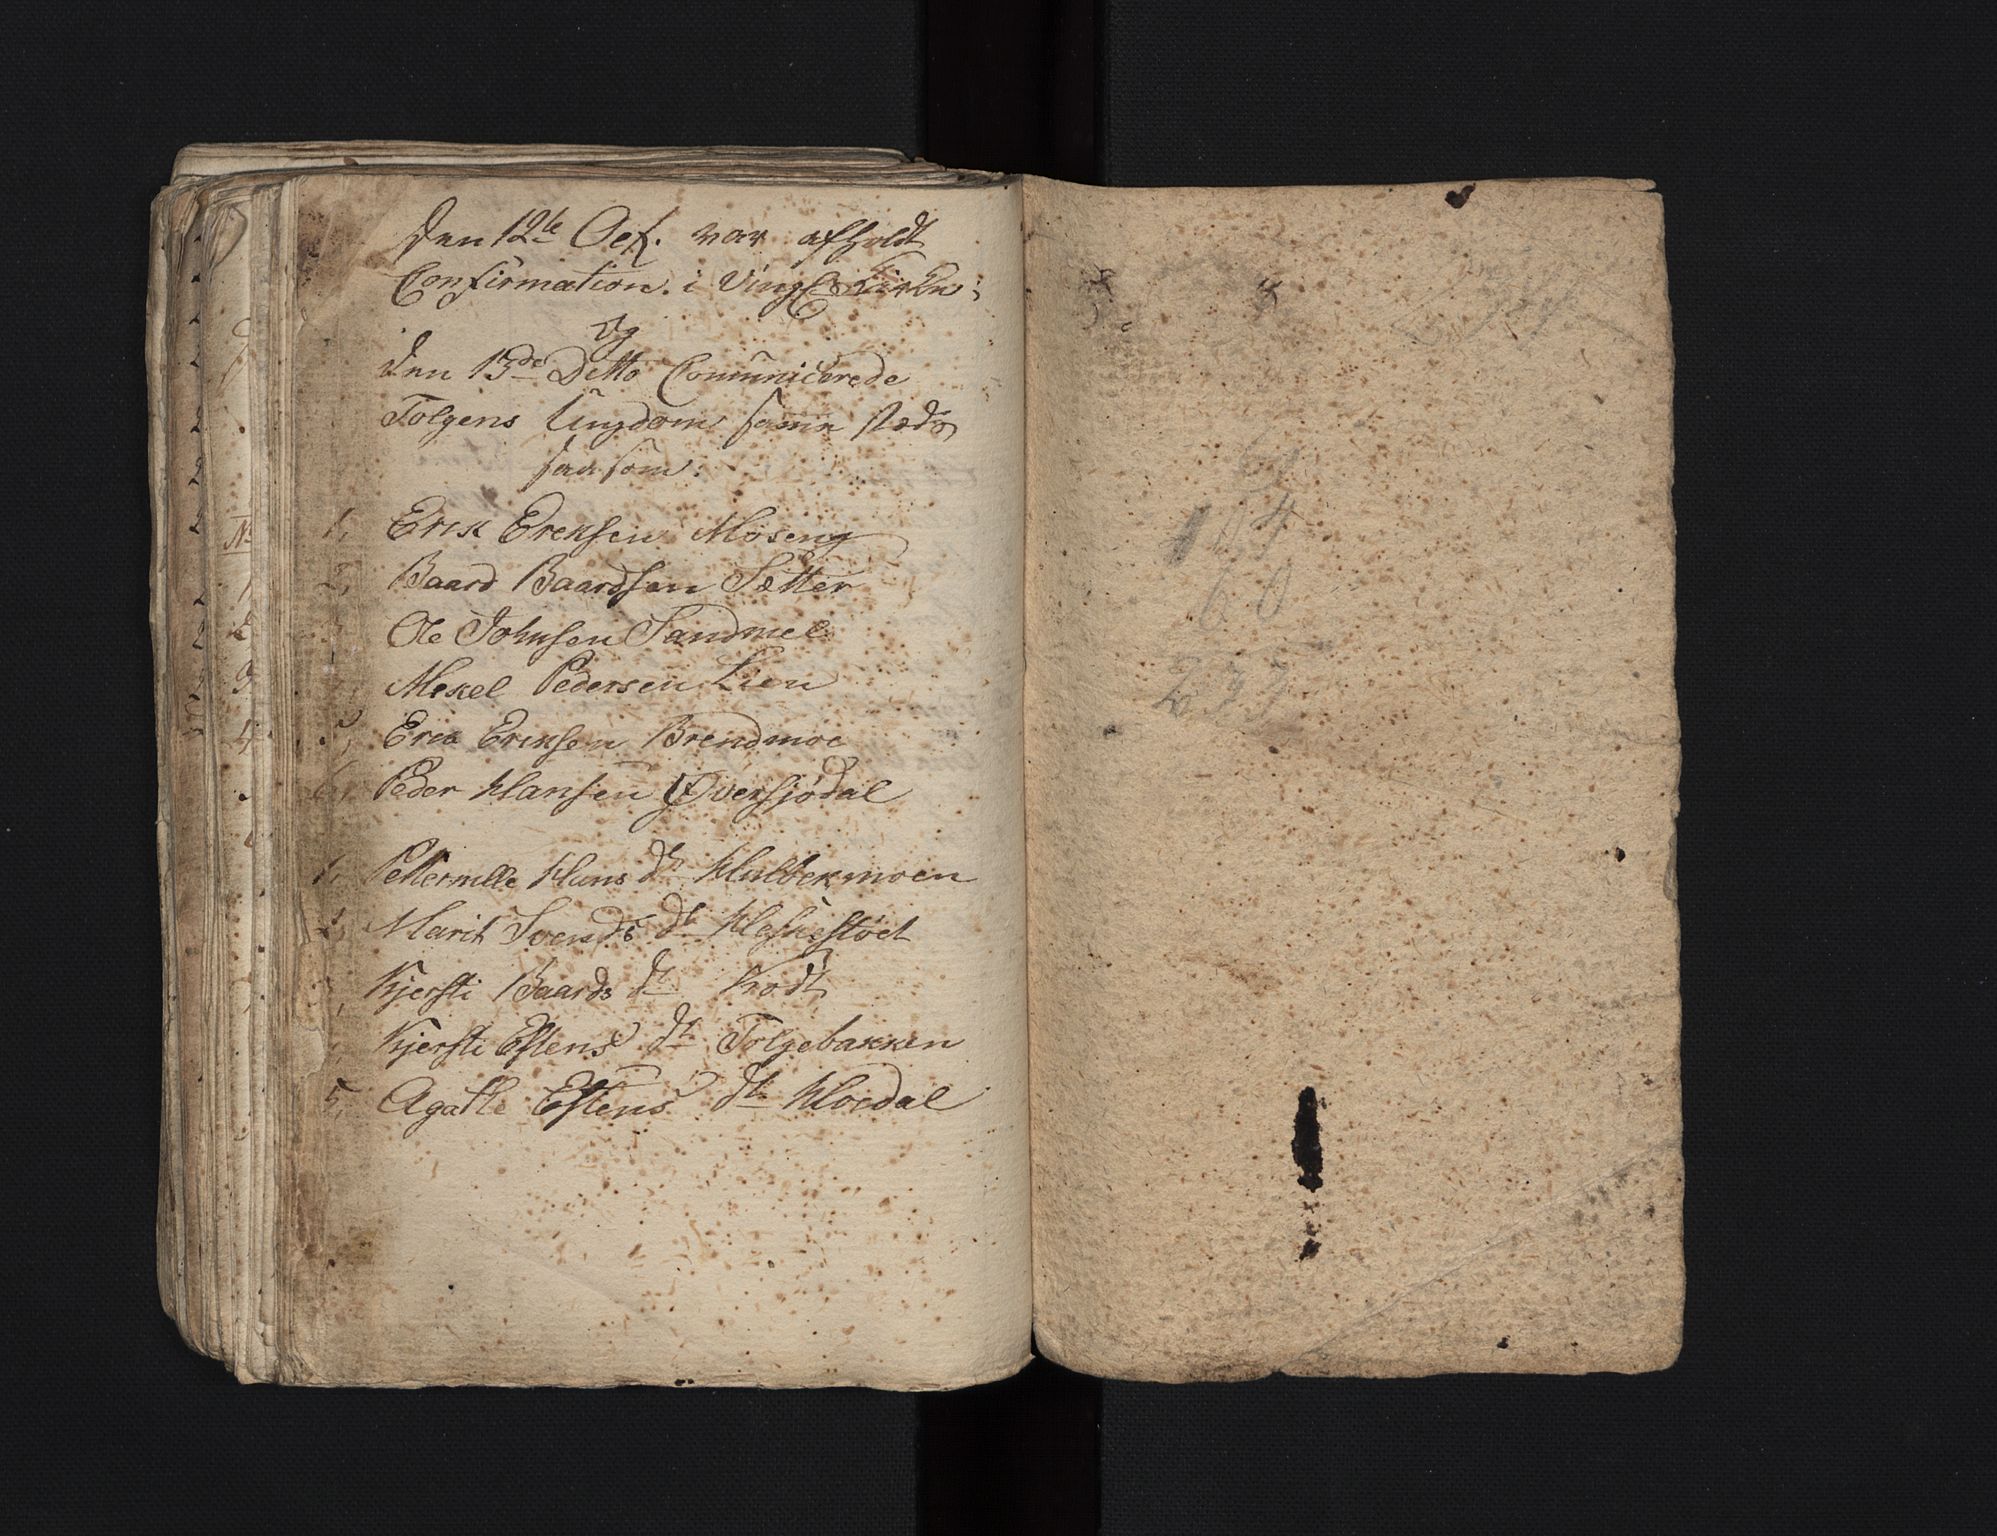 Den 12te Oct. var afholdt
Confirmation i Vingel Kirke;
og
den 13de Ditto Comunicerede
Tolgens Ungdom samme stæds
saasom:
1, Erik Ereksen Moseng
2, Baard Baardsen Sætter
Ole Johnsen Sandmel
Mekel Pedersen Lien
5, Erik Eriksen Brendmoe
6, Peder Hansen Øversjødal
1, Petternille Hans Dtr Hulbekmoen
2, Marit Svends Dtr
Kjersti Baards Dtr Kodt
Kjersti Estens Dtr Tolgebakken
5, Agathe Estens Dtr Hoedal
61
154
60
233